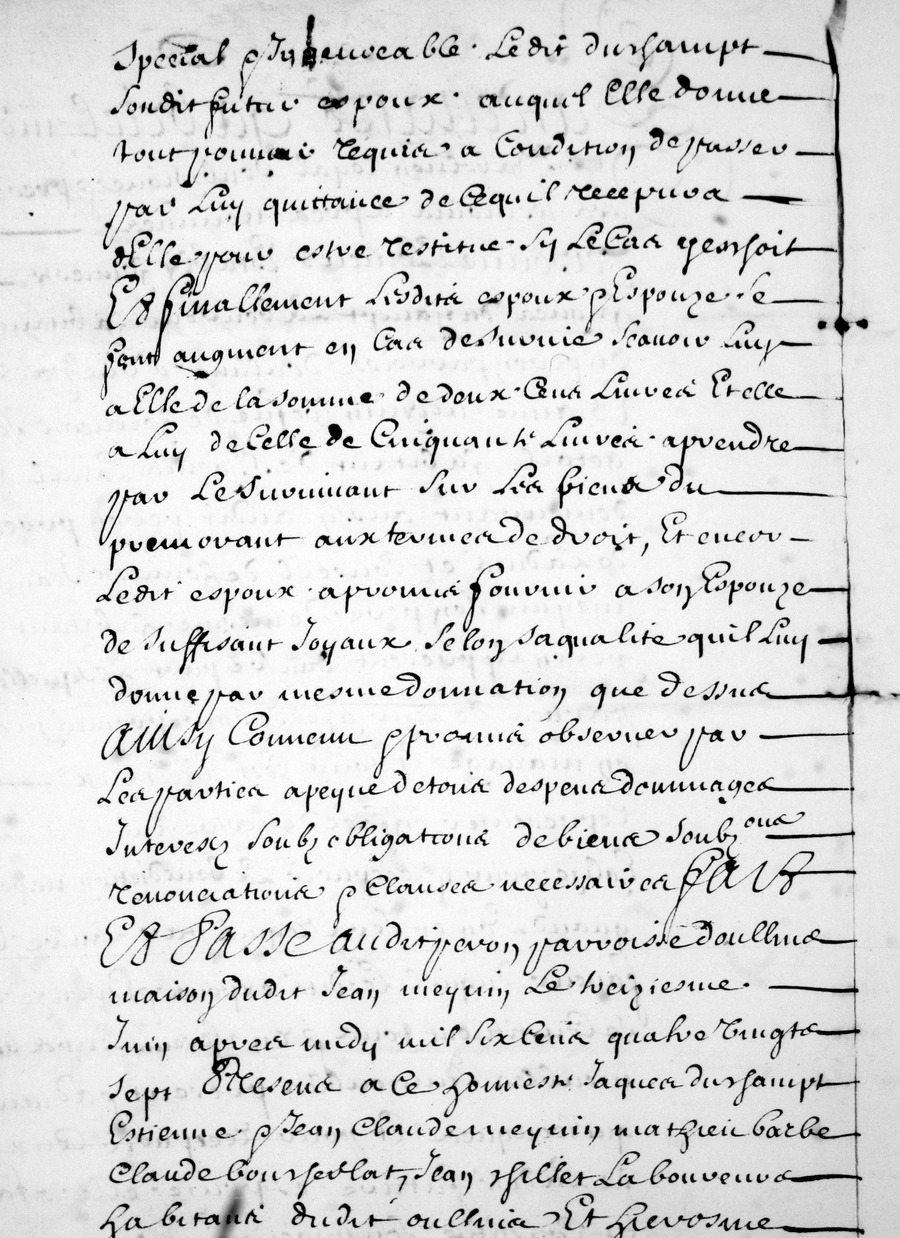 special & Irrevocable Ledit duchampt
sondit futur espoux auquel Elle donne
tout pouvoir requis a Condition de passer
par Luy quittance de Cequil recepvra
dElle pour estre restitue sy LeCas yeschoit
Et finallement Lesdits espoux & Espouze se
font augment en Cas de survie scavoir Luy
a Elle de la somme de deux Cens Livres Et elle
a Luy de Celle de Cinquante Livres aprendre
par Le Survivant Sur Les biens du
premorant aux termes de droit, Et encor
Ledit espoux a promis fournir a son Espouze
de suffisant Joyaux selon sa qualite quil Luy
donne par mesme donnation que dessus
Ainsy Convenu & promis observer par
Les parties a peyne de tous despens dommages
Interestz soubz obligations de biens soubz ons
renonciations & Clauses necessaires fait
Et Passe audit peron parroisse doullins
maison dudit Jean meynin Le treiziesme
Juin apres midy mil six Cens quatre vingts
sept Presens a Ce honneste Jaques duchampt
Estienne & Jean Claude meynin mathieu barbe
Claude bourserlat, Jean chillet Laboureurs
habitants dudit oullins Et hierosme